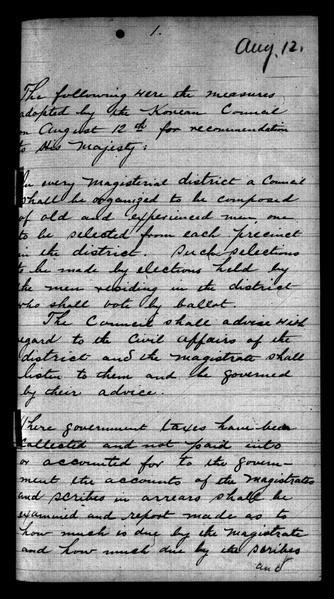 1.
Aug. 12.
The following were the measures
adopted by the Korean Council
on August 12th for recommendation
to His Majesty:
In every magisterial district a Council
shall be organized to be composed
of old and experienced men, one
to be selected from each precinct
in the district. Such selections
to be made by elections held by
the men residing in the district
who shall vote by ballot.
The Council shall advise with
regard to the Civil affairs of the
district and the magistrate shall
listen to them and be governed
by their advice.
Where government taxes have been
collected and not paid into
or accounted for to the govern-
ment the accounts of the magistrates
and scribes in arrears shall be
examined and report made as to
how much is due by the magistrate
and how much due by the scribes
and